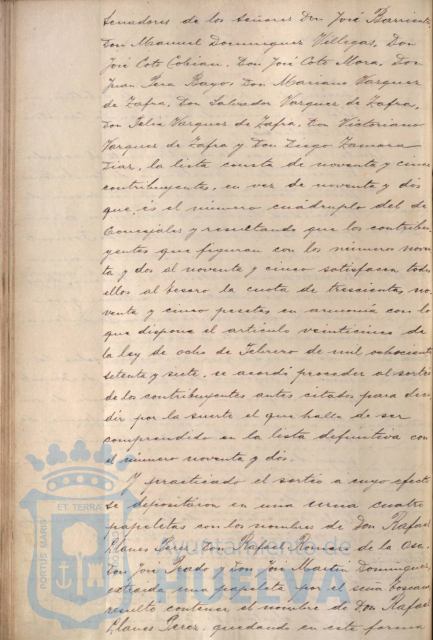 Senadores de los Señores Don José Barriento,
Don Manuel Dominguez Villegas, Don
José Coto Cobian, Don José Coto Mora, Don
Juan Pera Rayo, Don Mariano Vazquez
de Zafra, Don Salvador Vazquez de Zafra,
Don Felix Vazquez de Zafra, Don Victoriano
Vazquez de Zafra y Don Diego Zamora
Diaz, la lista consta de noventa y cinco
contribuyentes, en vez de noventa y dos
que es el número cuádruplo del de
Concejales y resultando que los contribu
yentes que figuran con los números noven
ta y dos al noventa y cinco satisfacen todos
ellos al Tesoro la cuota de trescientas no
venta y cinco pesetas en armonía con lo
que dispone el artículo veinticinco de
la ley de ocho de Febrero de mil ochocientos
setenta y siete, se acordó proceder al sorteo
de los contribuyentes antes citados para deci
dir por la suerte el que halla de ser
comprendido en la lista definitiva con
el número noventa y dos.
Y practicado el sorteo a cuyo efecto
se depositaron en una urna cuatro
papeletas con los nombres de Don Rafael
Llanes Perez, Don Rafael Romero de la Osa,
Don José Prado y Don José Martin Dominguez,
extraida una papeleta por el señor
resultó contener el nombre de Don Rafael
Llanes Perez, quedando en esta forma
PORTUS MARIS ET TERRAE
Ayuntamiento de
HUELVA